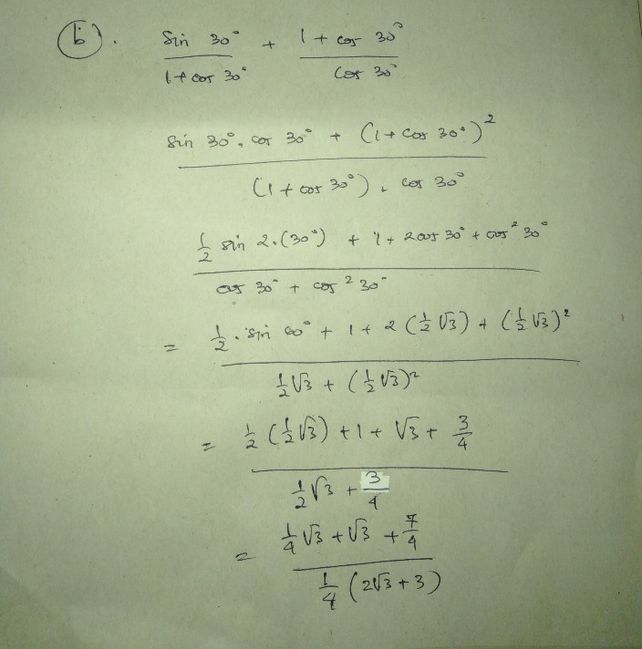 (b). sin 30° / 1 + cos 30° + 1 + cos 30° / cos 30°
sin 30°. cos 30° + (1 + cos 30°)² / (1 + cos 30°). cos 30°
1/2 sin 2.(30°) + 1 + 2cos 30° + cos² 30° / cos 30° + cos² 30°
= 1/2 . sin 60° + 1 + 2 (1/2 √3) + (1/2 √3)² / 1/2 √3 + (1/2 √3)²
= 1/2 (1/2 √3) + 1 + √3 + 3/4 / 1/2 √3 + 3/4
= 1/4 √3 + √3 + 7/4 / 1/4 (2√3 + 3)